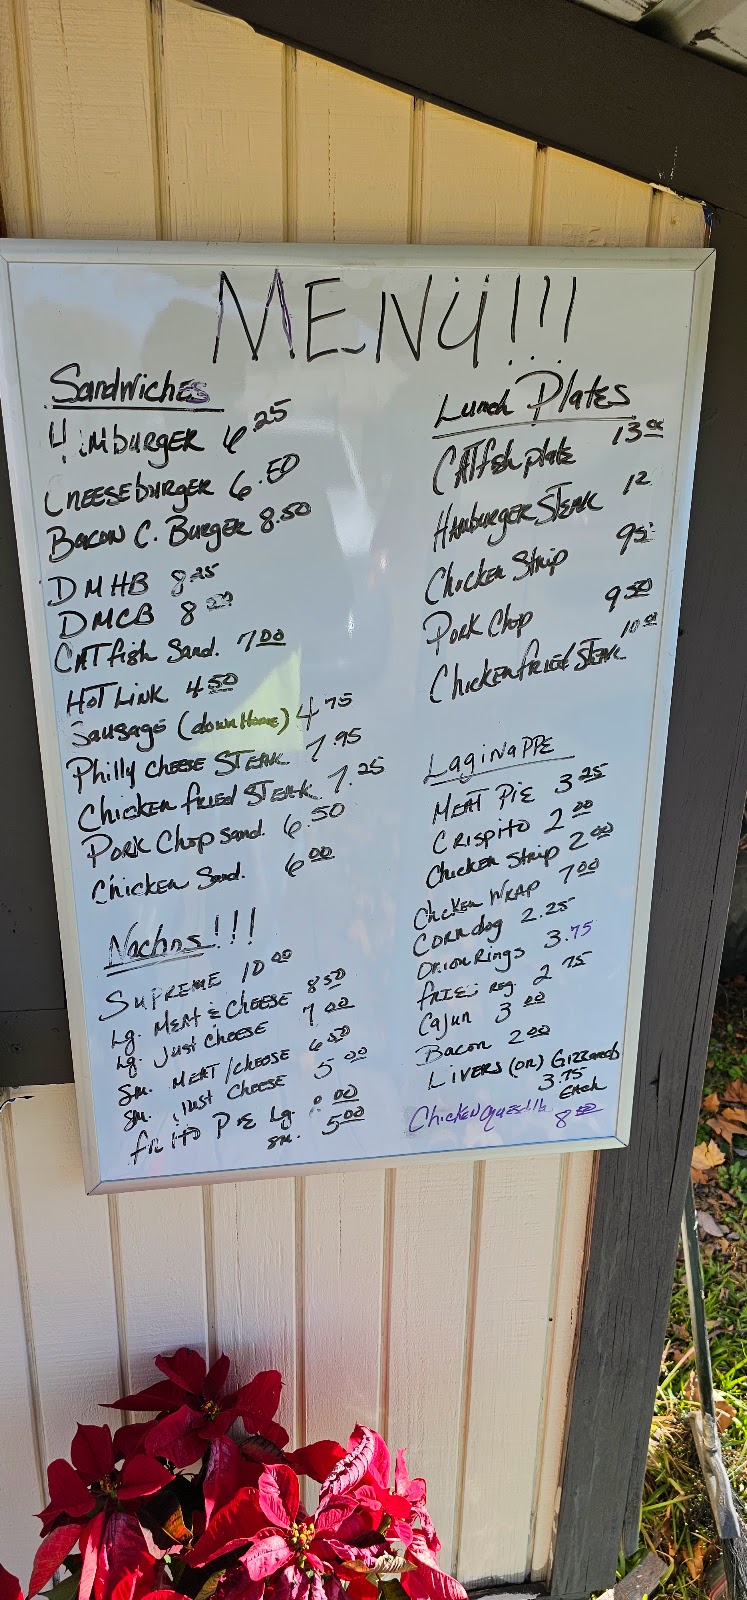 MENU!!!
Sandwiches
HamBURGER 6.25
CHEESEBURGER 6.50
BACON C. BURGER 8.50
DMHB 8.25
DMCB 8
CATfish Sand. 7.00
HOT LINK 4.50
Sausage (down Home) 4.75
Philly CHEESE STEAK 7.95
Chicken fRied STEAK 7.25
PORK Chop sand. 6.50
Chicken Sand. 6.00
Nachos!!!
SUPREME 10.00
Lg. MEAT & CHEESE 8.50
Lg. Just CHEESE 7.00
Sm. MEAT/CHEESE 6.50
Sm. Just CHEESE 5.00
fRITO PIE Lg.
sm. 5.00
Lunch Plates
CATfish plate 13.00
HAMBURGER STEAK 12
Chicken Strip
PORK Chop 9.50
Chicken fRied STEAK 10.00
LAGINAPPE
MEAT PIE 3.25
CRispito 2.00
Chicken Strip 2.00
Chicken WRAP 7.00
CORN dog 2.25
Onion Rings 3.75
fRIES Reg. 2.75
Cajun 3.00
Bacon 2.00
LIVERS (OR) Gizzards
3.75
EACH
Chicken
8.50